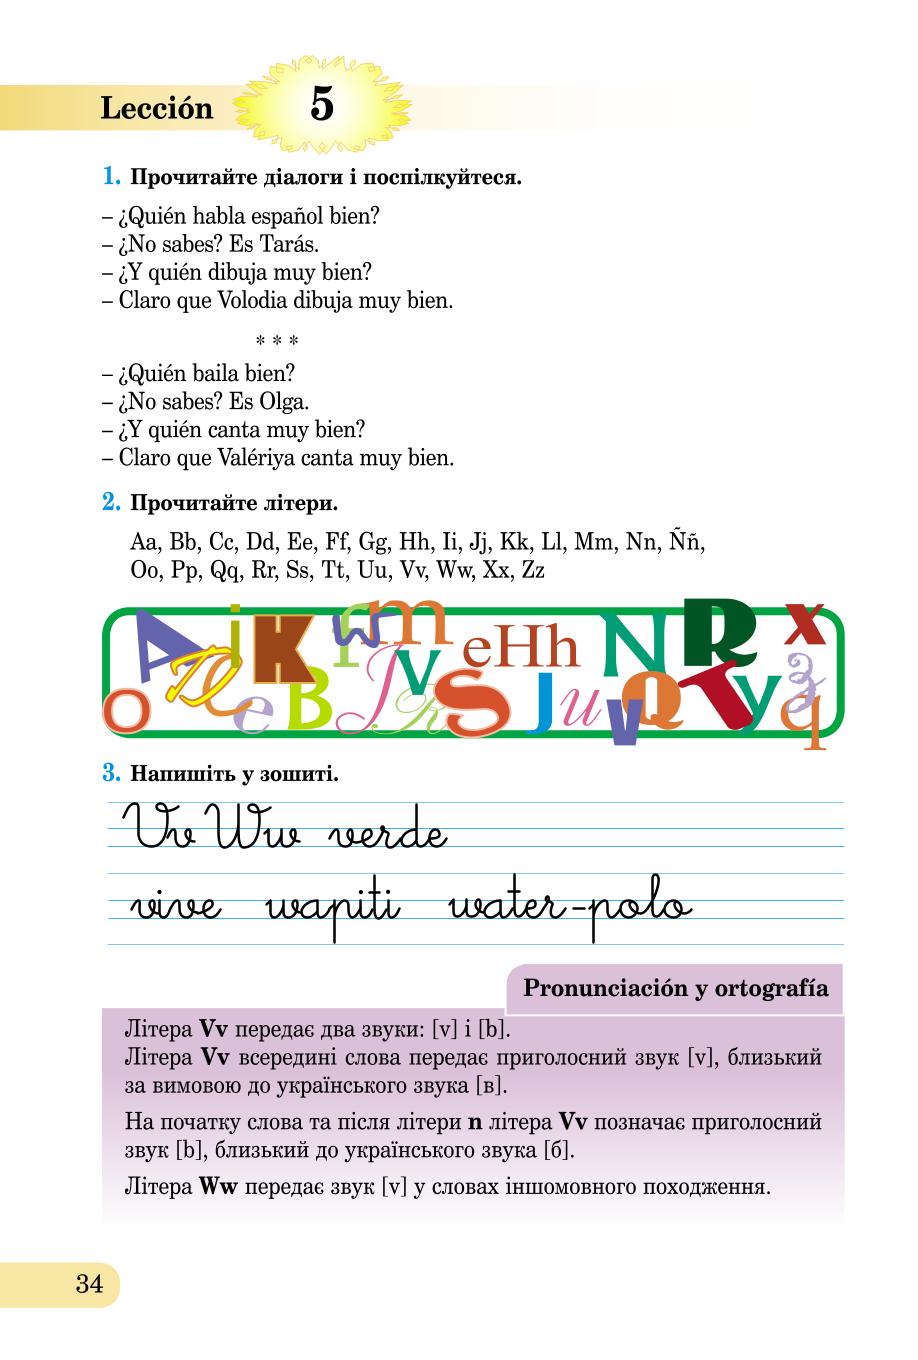 Lección 5
1. Прочитайте діалоги і поспілкуйтеся.
– ¿Quién habla español bien?
– ¿No sabes? Es Tarás.
– ¿Y quién dibuja muy bien?
– Claro que Volodia dibuja muy bien.
* * *
– ¿Quién baila bien?
– ¿No sabes? Es Olga.
– ¿Y quién canta muy bien?
– Claro que Valériya canta muy bien.
2. Прочитайте літери.
Aa, Bb, Cc, Dd, Ee, Ff, Gg, Hh, Ii, Jj, Kk, Ll, Mm, Nn, Ññ,
Oo, Pp, Qq, Rr, Ss, Tt, Uu, Vv, Ww, Xx, Zz
3. Напишіть у зошиті.
Vv Ww verde
vive wapiti water-polo
Pronunciación y ortografía
Літера Vv передає два звуки: [v] і [b].
Літера Vv всередині слова передає приголосний звук [v], близький
за вимовою до українського звука [в].
На початку слова та після літери n літера Vv позначає приголосний
звук [b], близький до українського звука [б].
Літера Ww передає звук [v] у словах іншомовного походження.
34